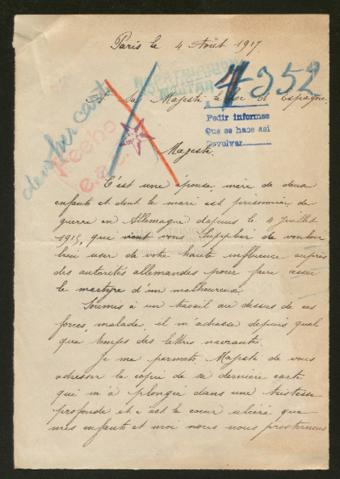 Paris le 4 Août 1917
4352
Sa Majesté le Roi d'Espagne
Pedir informes
Que se hace asi
Devolver
Majesté.
C'est une épouse, mère de deux
enfants et dont le mari est prisonnier de
guerre en Allemagne depuis le 4 Juillet
1915, que vient vous supplier de vouloir
bien user de votre haute influence auprès
des autorités allemandes pour faire cesser
le martyre d'un malheureux.
Soumis à un travail au dessus de ces
forces malade, il m'adresse depuis quel
que temps des lettres navrantes.
Je me permets Majesté de vous
adresser la copie de sa dernière carte
qui m'a plongée dans une tristesse
profonde et c'est le coeur ulcéré que
mes enfants et moi nous nous prosternons